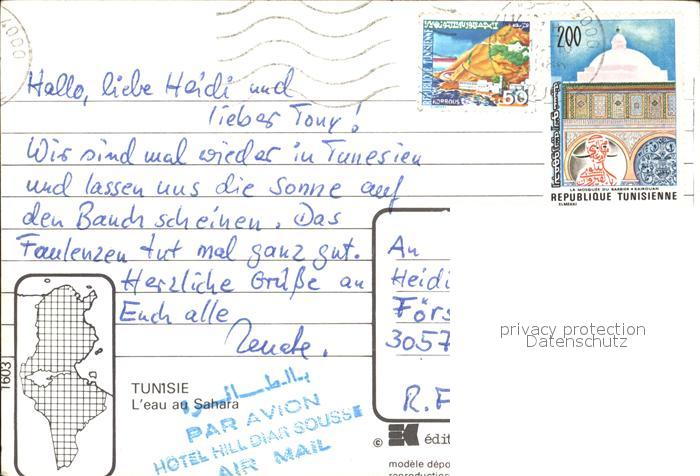 Hallo, liebe Heidi und
lieber Tony!
Wir sind mal wieder in Tunesien
und lassen uns die Sonne auf
den Bauch scheinen. Das
Faulenzen tut mal ganz gut.
Herzliche Grüße an
Euch alle
Renate.
An
Heidi
Förs
3057
R.F
privacy protection
Datenschutz
1603
TUNISIE
L'eau au Sahara
PAR AVION
HOTEL HILL DIAR SOUSSE
AIR MAIL
© édit
modèle dépo
reproduction
REPUBLIQUE TUNISIENNE
KORBOUS
50
200
LA MOSQUÉE DU BARBIER KAIROUAN
REPUBLIQUE TUNISIENNE
ELMEKKI
4000